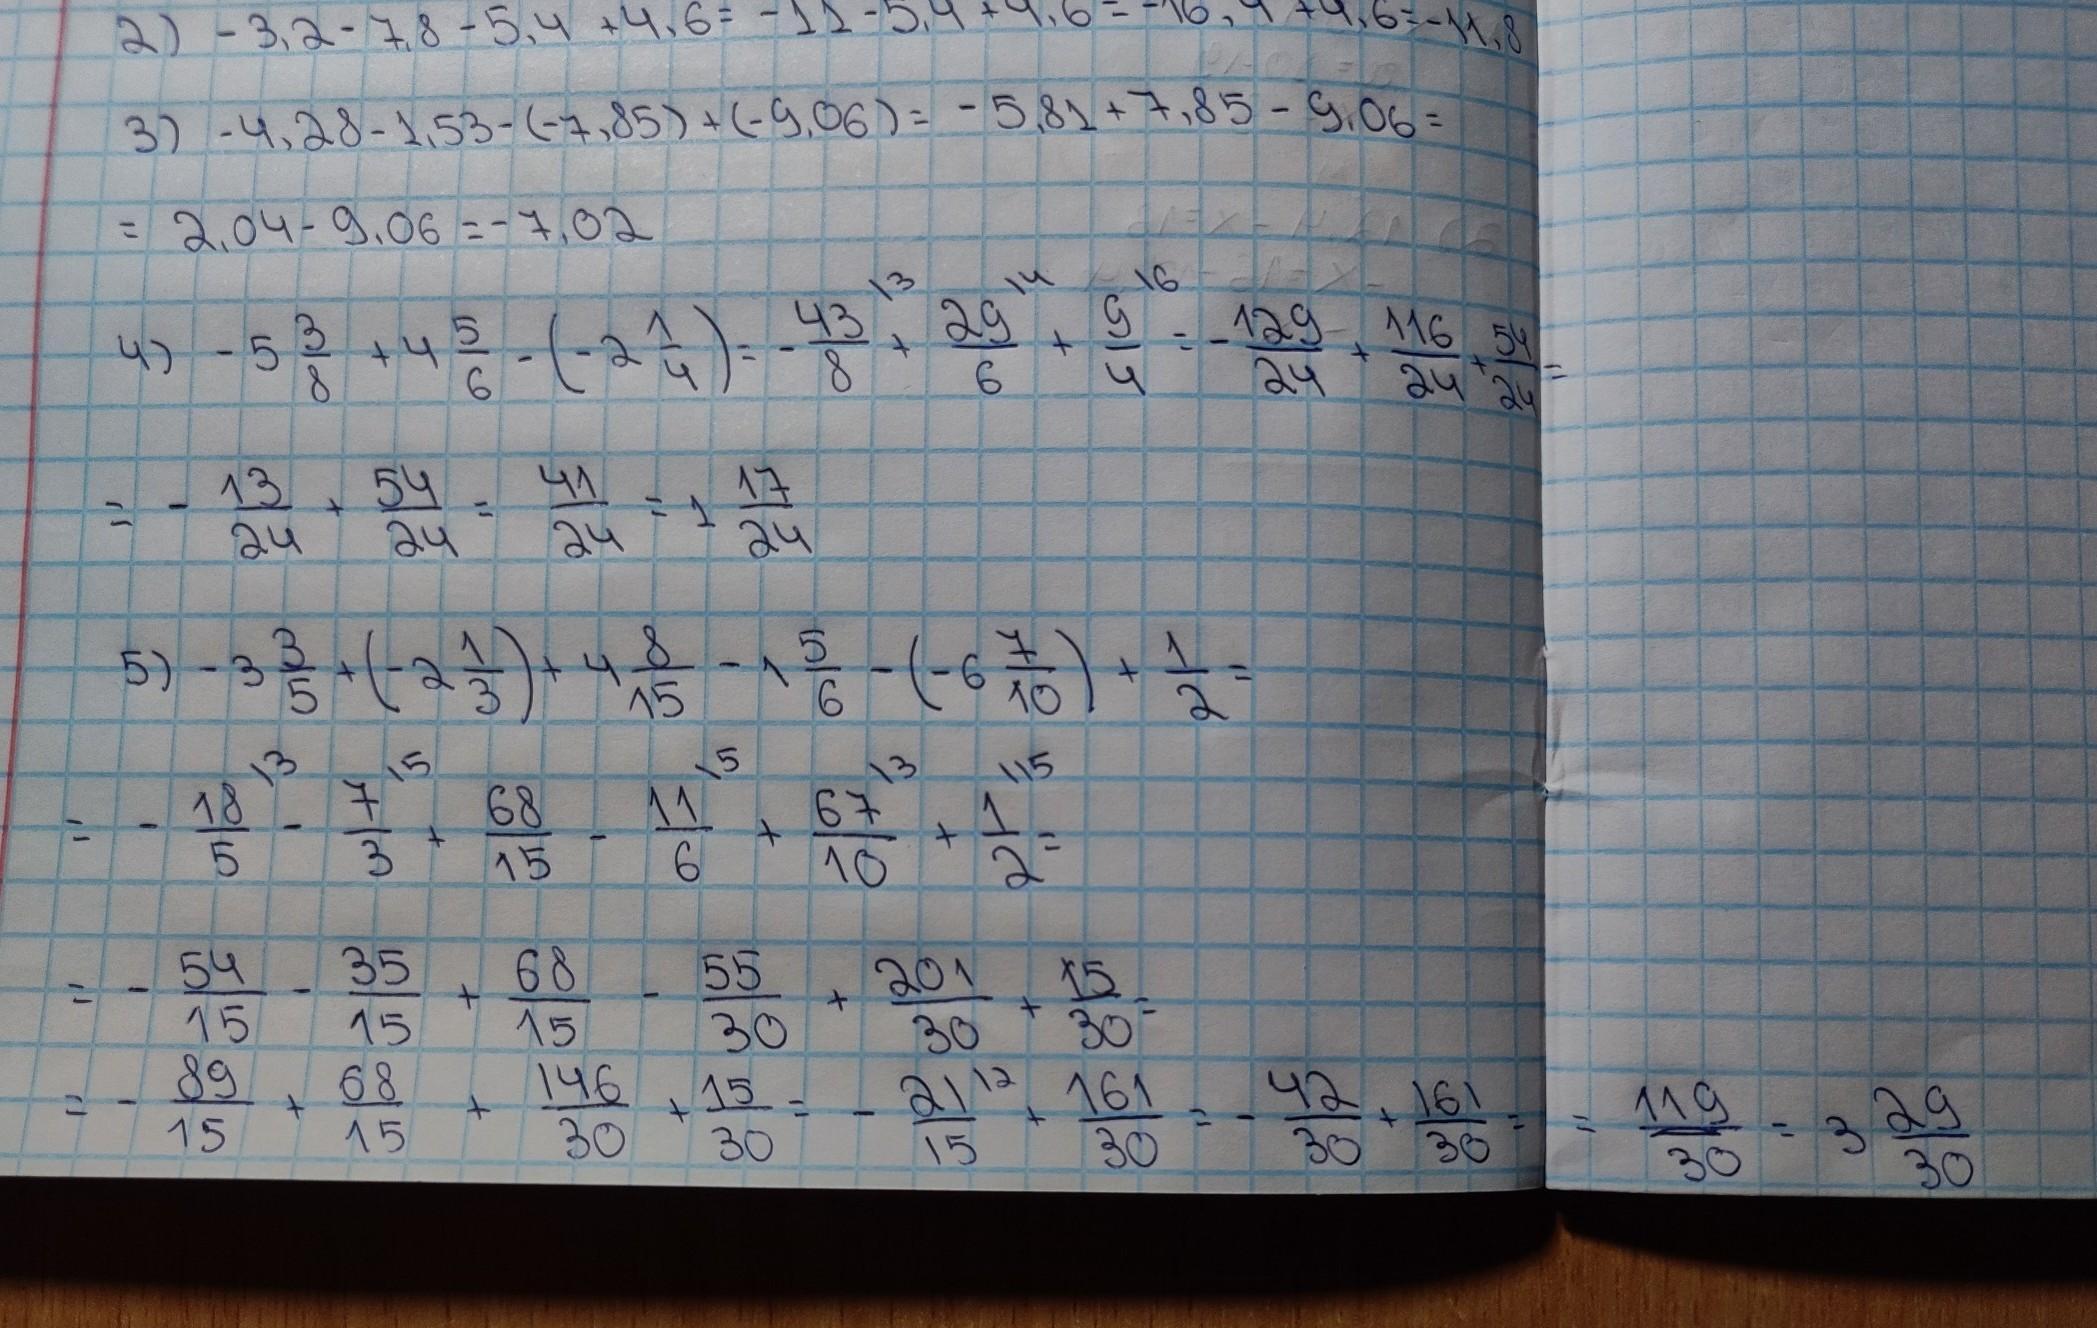 2) -3,2-7,8-5,4+4,6=-11-5,4+4,6=-16,4+4,6=-11,8
3) -4,28-1,53-(-7,85)+(-9,06)= -5,81+7,85-9,06=
= 2,04-9,06=-7,02
4) -5 3/8 +4 5/6 -(-2 1/4)= - 43/8 \3 + 29/6 \4 + 9/4 \6 = - 129/24 + 116/24 + 54/24 =
= - 13/24 + 54/24 = 41/24 = 1 17/24
5) -3 3/5 +(-2 1/3)+ 4 8/15 - 1 5/6 -(-6 7/10) + 1/2 =
= - 18/5 \3 - 7/3 \5 + 68/15 - 11/6 \5 + 67/10 \3 + 1/2 \15 =
= - 54/15 - 35/15 + 68/15 - 55/30 + 201/30 + 15/30 =
= - 89/15 + 68/15 + 146/30 + 15/30 = - 21/15 \2 + 161/30 = - 42/30 + 161/30 = = 119/30 = 3 29/30